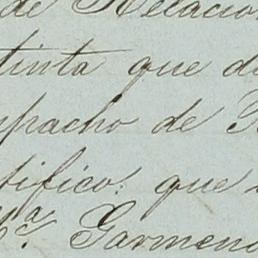 de Relacion
tinta que d
spacho de
tifico: que
Garmen